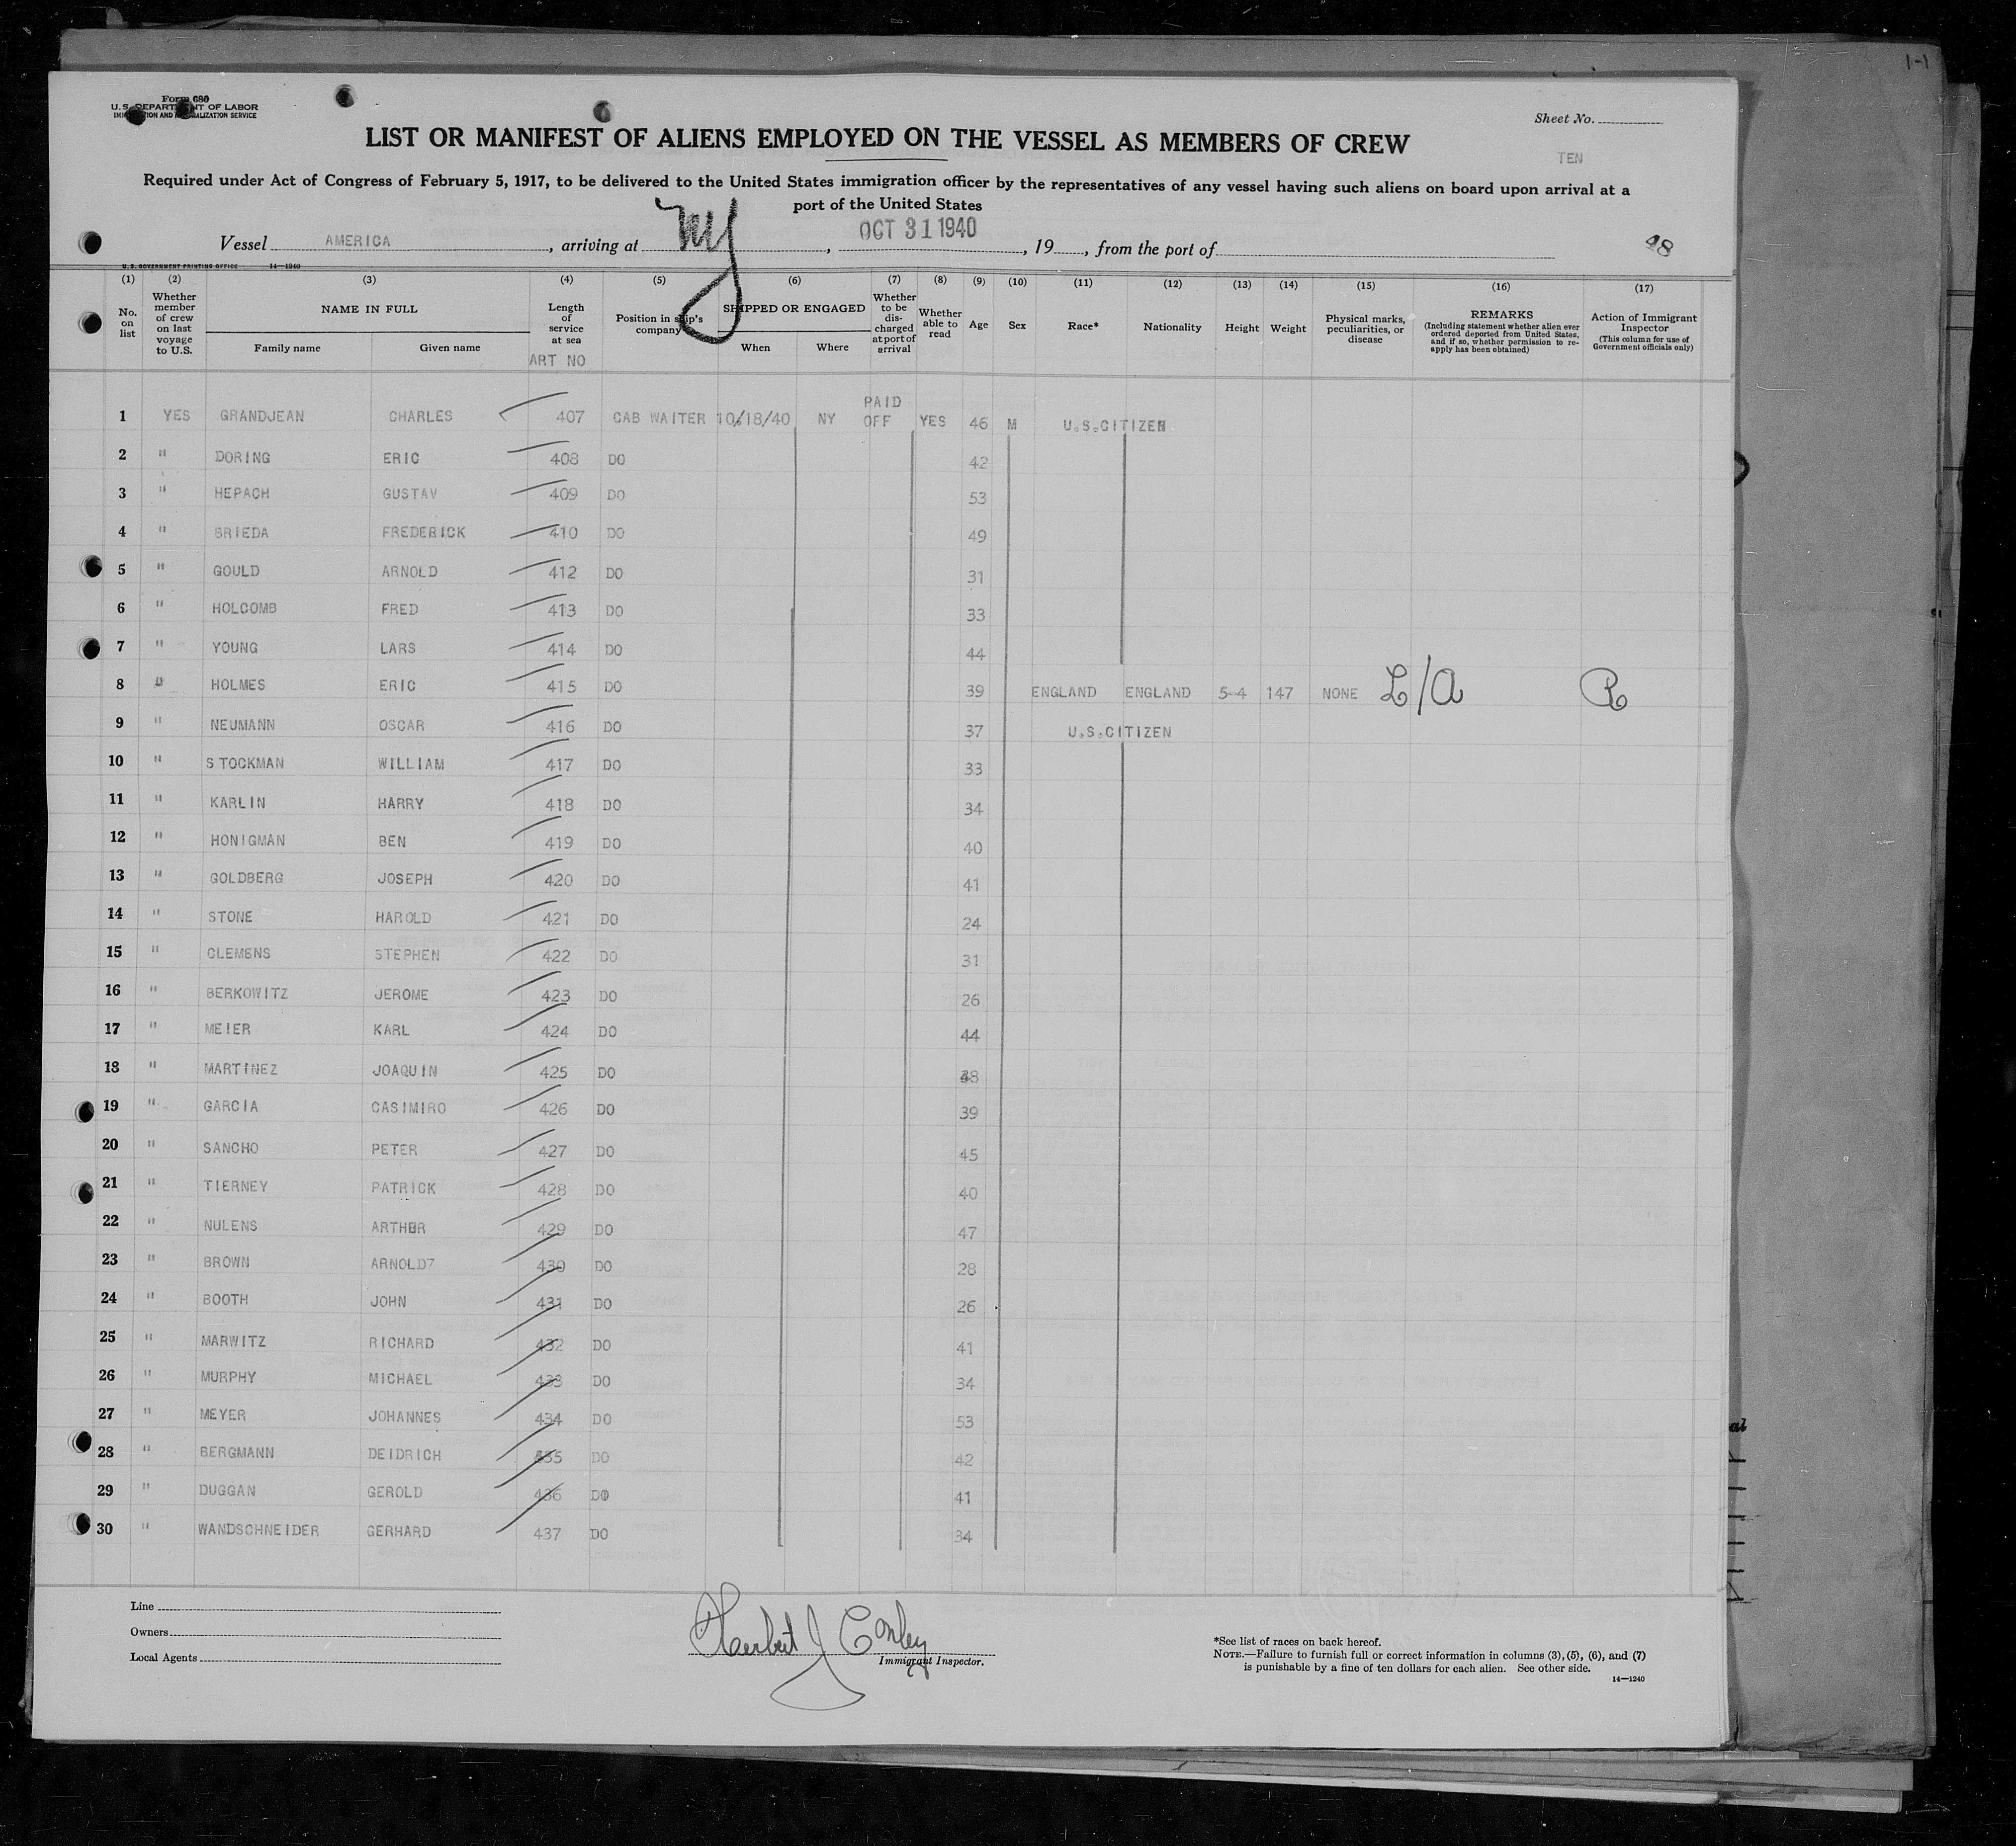 1-1
Form 680
U. S. DEPARTMENT OF LABOR
IMMIGRATION AND NATURALIZATION SERVICE
Sheet No.
TEN
LIST OR MANIFEST OF ALIENS EMPLOYED ON THE VESSEL AS MEMBERS OF CREW
Required under Act of Congress of February 5, 1917, to be delivered to the United States immigration officer by the representatives of any vessel having such aliens on board upon arrival at a
port of the United States
Vessel AMERICA, arriving at NY, OCT 31 1940, 19, from the port of
98
U. S. GOVERNMENT PRINTING OFFICE 14—1240
(1) (2) (3) (4) (5) (6) (7) (8) (9) (10) (11) (12) (13) (14) (15) (16) (17)
No. on list
Whether member of crew on last voyage to U.S.
NAME IN FULL
Family name Given name
Length of service at sea
ART NO
Position in ship's company
SHIPPED OR ENGAGED
When Where
Whether to be discharged at port of arrival
Whether able to read
Age
Sex
Race*
Nationality
Height
Weight
Physical marks, peculiarities, or disease
REMARKS
(Including statement whether alien ever ordered deported from United States, and if so, whether permission to re-apply has been obtained)
Action of Immigrant Inspector
(This column for use of Government officials only)
1 YES GRANDJEAN CHARLES 407 CAB WAITER 10/18/40 NY PAID OFF YES 46 M U.S.CITIZEN
2 " DORING ERIC 408 DO 42
3 " HEPACH GUSTAV 409 DO 53
4 " BRIEDA FREDERICK 410 DO 49
5 " GOULD ARNOLD 412 DO 31
6 " HOLCOMB FRED 413 DO 33
7 " YOUNG LARS 414 DO 44
8 " HOLMES ERIC 415 DO 39 ENGLAND ENGLAND 5-4 147 NONE L/A R
9 " NEUMANN OSCAR 416 DO 37 U.S.CITIZEN
10 " STOCKMAN WILLIAM 417 DO 33
11 " KARLIN HARRY 418 DO 34
12 " HONIGMAN BEN 419 DO 40
13 " GOLDBERG JOSEPH 420 DO 41
14 " STONE HAROLD 421 DO 24
15 " CLEMENS STEPHEN 422 DO 31
16 " BERKOWITZ JEROME 423 DO 26
17 " MEIER KARL 424 DO 44
18 " MARTINEZ JOAQUIN 425 DO
19 " GARCIA CASIMIRO 426 DO 39
20 " SANCHO PETER 427 DO 45
21 " TIERNEY PATRICK 428 DO 40
22 " NULENS ARTHUR 429 DO 47
23 " BROWN ARNOLD7 430 DO 28
24 " BOOTH JOHN 431 DO 26
25 " MARWITZ RICHARD 432 DO 41
26 " MURPHY MICHAEL 433 DO 34
27 " MEYER JOHANNES 434 DO 53
28 " BERGMANN DEIDRICH 435 DO 42
29 " DUGGAN GEROLD 436 DO 41
30 " WANDSCHNEIDER GERHARD 437 DO 34
Line
Owners
Local Agents
Herbert J Conley
Immigrant Inspector.
*See list of races on back hereof.
NOTE.—Failure to furnish full or correct information in columns (3), (5), (6), and (7)
is punishable by a fine of ten dollars for each alien. See other side.
14—1240